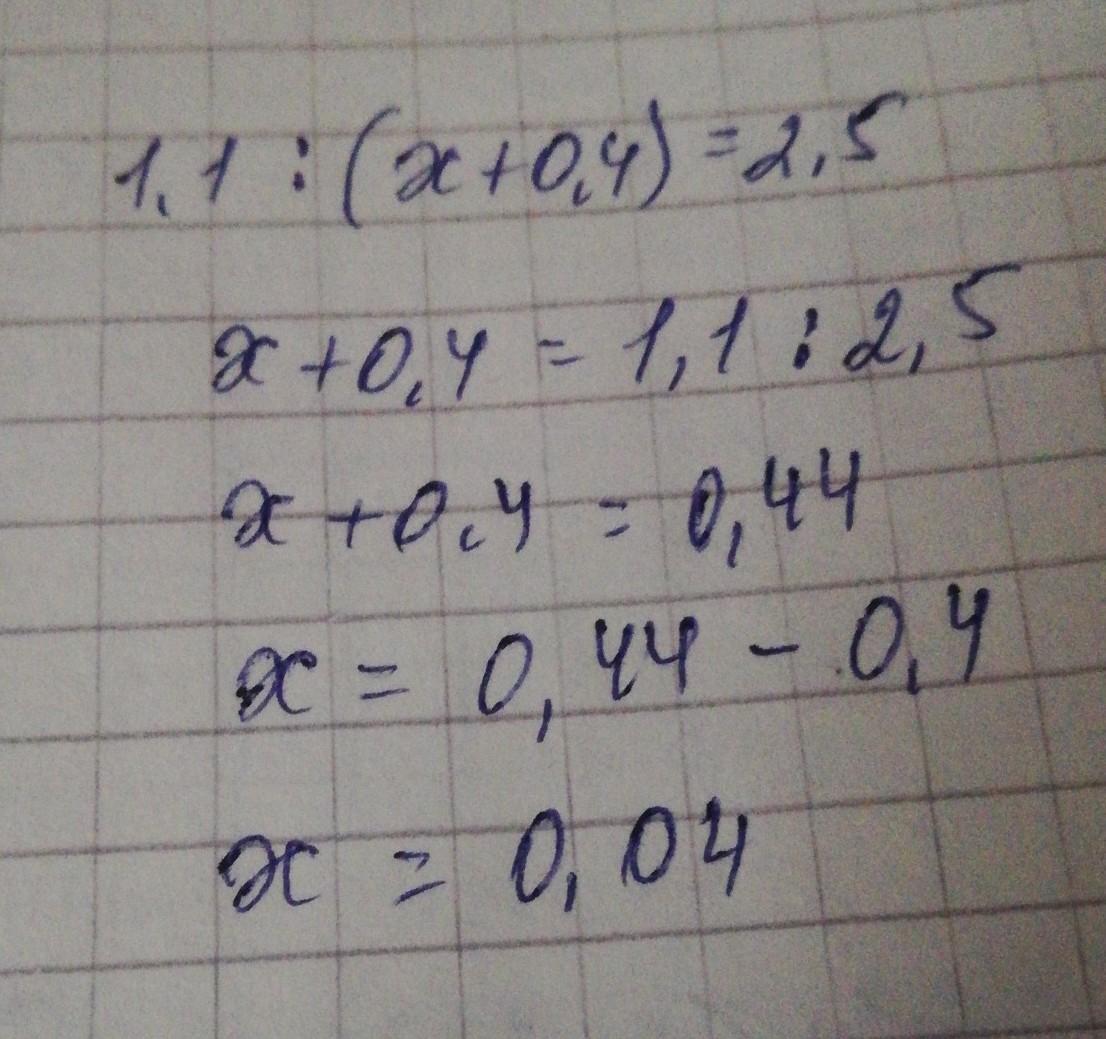 1,1 : (x+0,4) = 2,5
x + 0,4 = 1,1 : 2,5
x + 0,4 = 0,44
x = 0,44 - 0,4
x = 0,04